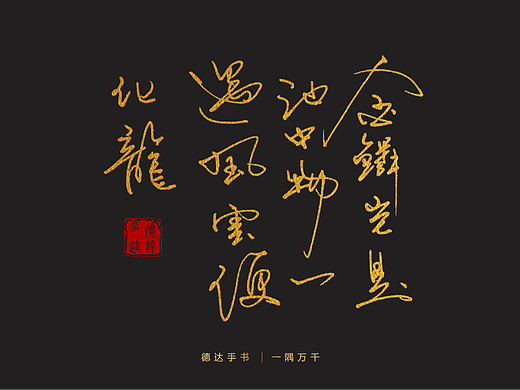 金鱗岂是
池中物一
遇風雲便
化龍
德达手书｜一隅万千